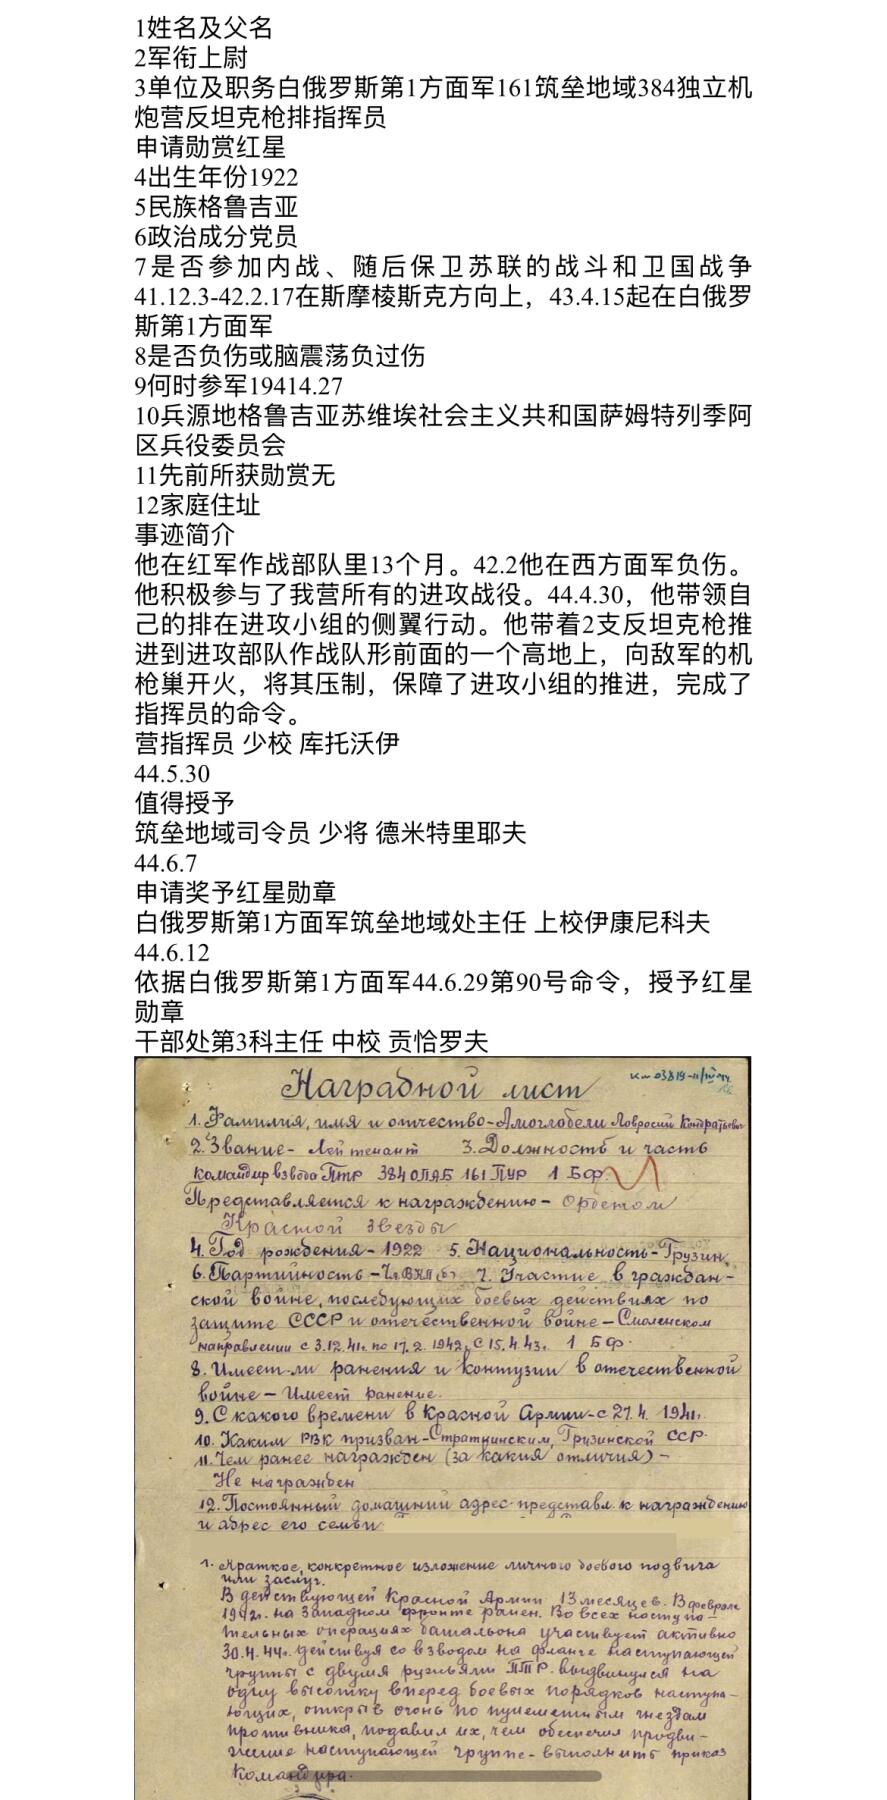 1姓名及父名
2军衔上尉
3单位及职务白俄罗斯第1方面军161筑垒地域384独立机
炮营反坦克枪排指挥员
申请勋赏红星
4出生年份1922
5民族格鲁吉亚
6政治成分党员
7是否参加内战、随后保卫苏联的战斗和卫国战争
41.12.3-42.2.17在斯摩棱斯克方向上，43.4.15起在白俄罗
斯第1方面军
8是否负伤或脑震荡负过伤
9何时参军19414.27
10兵源地格鲁吉亚苏维埃社会主义共和国萨姆特列季阿
区兵役委员会
11先前所获勋赏无
12家庭住址
事迹简介
他在红军作战部队里13个月。42.2他在西方面军负伤。
他积极参与了我营所有的进攻战役。44.4.30，他带领自
己的排在进攻小组的侧翼行动。他带着2支反坦克枪推
进到进攻部队作战队形前面的一个高地上，向敌军的机
枪巢开火，将其压制，保障了进攻小组的推进，完成了
指挥员的命令。
营指挥员 少校 库托沃伊
44.5.30
值得授予
筑垒地域司令员 少将 德米特里耶夫
44.6.7
申请奖予红星勋章
白俄罗斯第1方面军筑垒地域处主任 上校伊康尼科夫
44.6.12
依据白俄罗斯第1方面军44.6.29第90号命令，授予红星
勋章
干部处第3科主任 中校 贡恰罗夫
Наградной лист
1. Фамилия, имя и отчество-Амоглобели
2. Звание- Лейтенант 3. Должность и часть
командир взвода ПТР 384 ОПАБ 161 ПУР 1 БФ.
Представляется к награждению- Орденом
Красной звезды
4. Год рождения- 1922 5. Национальность-Грузин
6. Партийность-Чл ВКП(б) 7. Участие в граждан-
ской войне, последующих боевых действиях по
защите СССР и отечественной войне-Смоленском
направлении с 3.12.41г. по 17.2.1942г. С 15.4.43г. 1 БФ.
8. Имеет-ли ранения и контузии в отечественной
войне- Имеет ранение.
9. С какого времени в Красной Армии-с 27.4.1941г.
10. Каким РВК призван- Грузинской ССР.
11. Чем ранее награжден (за какия отличия)-
Не награжден
12. Постоянный домашний адрес представл. к награждению
и адрес его семьи
1. Краткое, конкретное изложение личного боевого подвига
или заслуг.
В действующей Красной Армии 13 месяцев. В феврале
1942г. на Западном фронте ранен. Во всех наступа-
тельных операциях батальона участвует активно
30.4.44г. действуя со взводом на фланге наступающей
группы с двумя ружьями ПТР. выдвинулся на
одну высотку вперед боевых порядков наступа-
ющих, открыв огонь по пулеметным гнездам
противника, подавил их, чем обеспечил продви-
жение наступающей группе- выполнить приказ
командира.